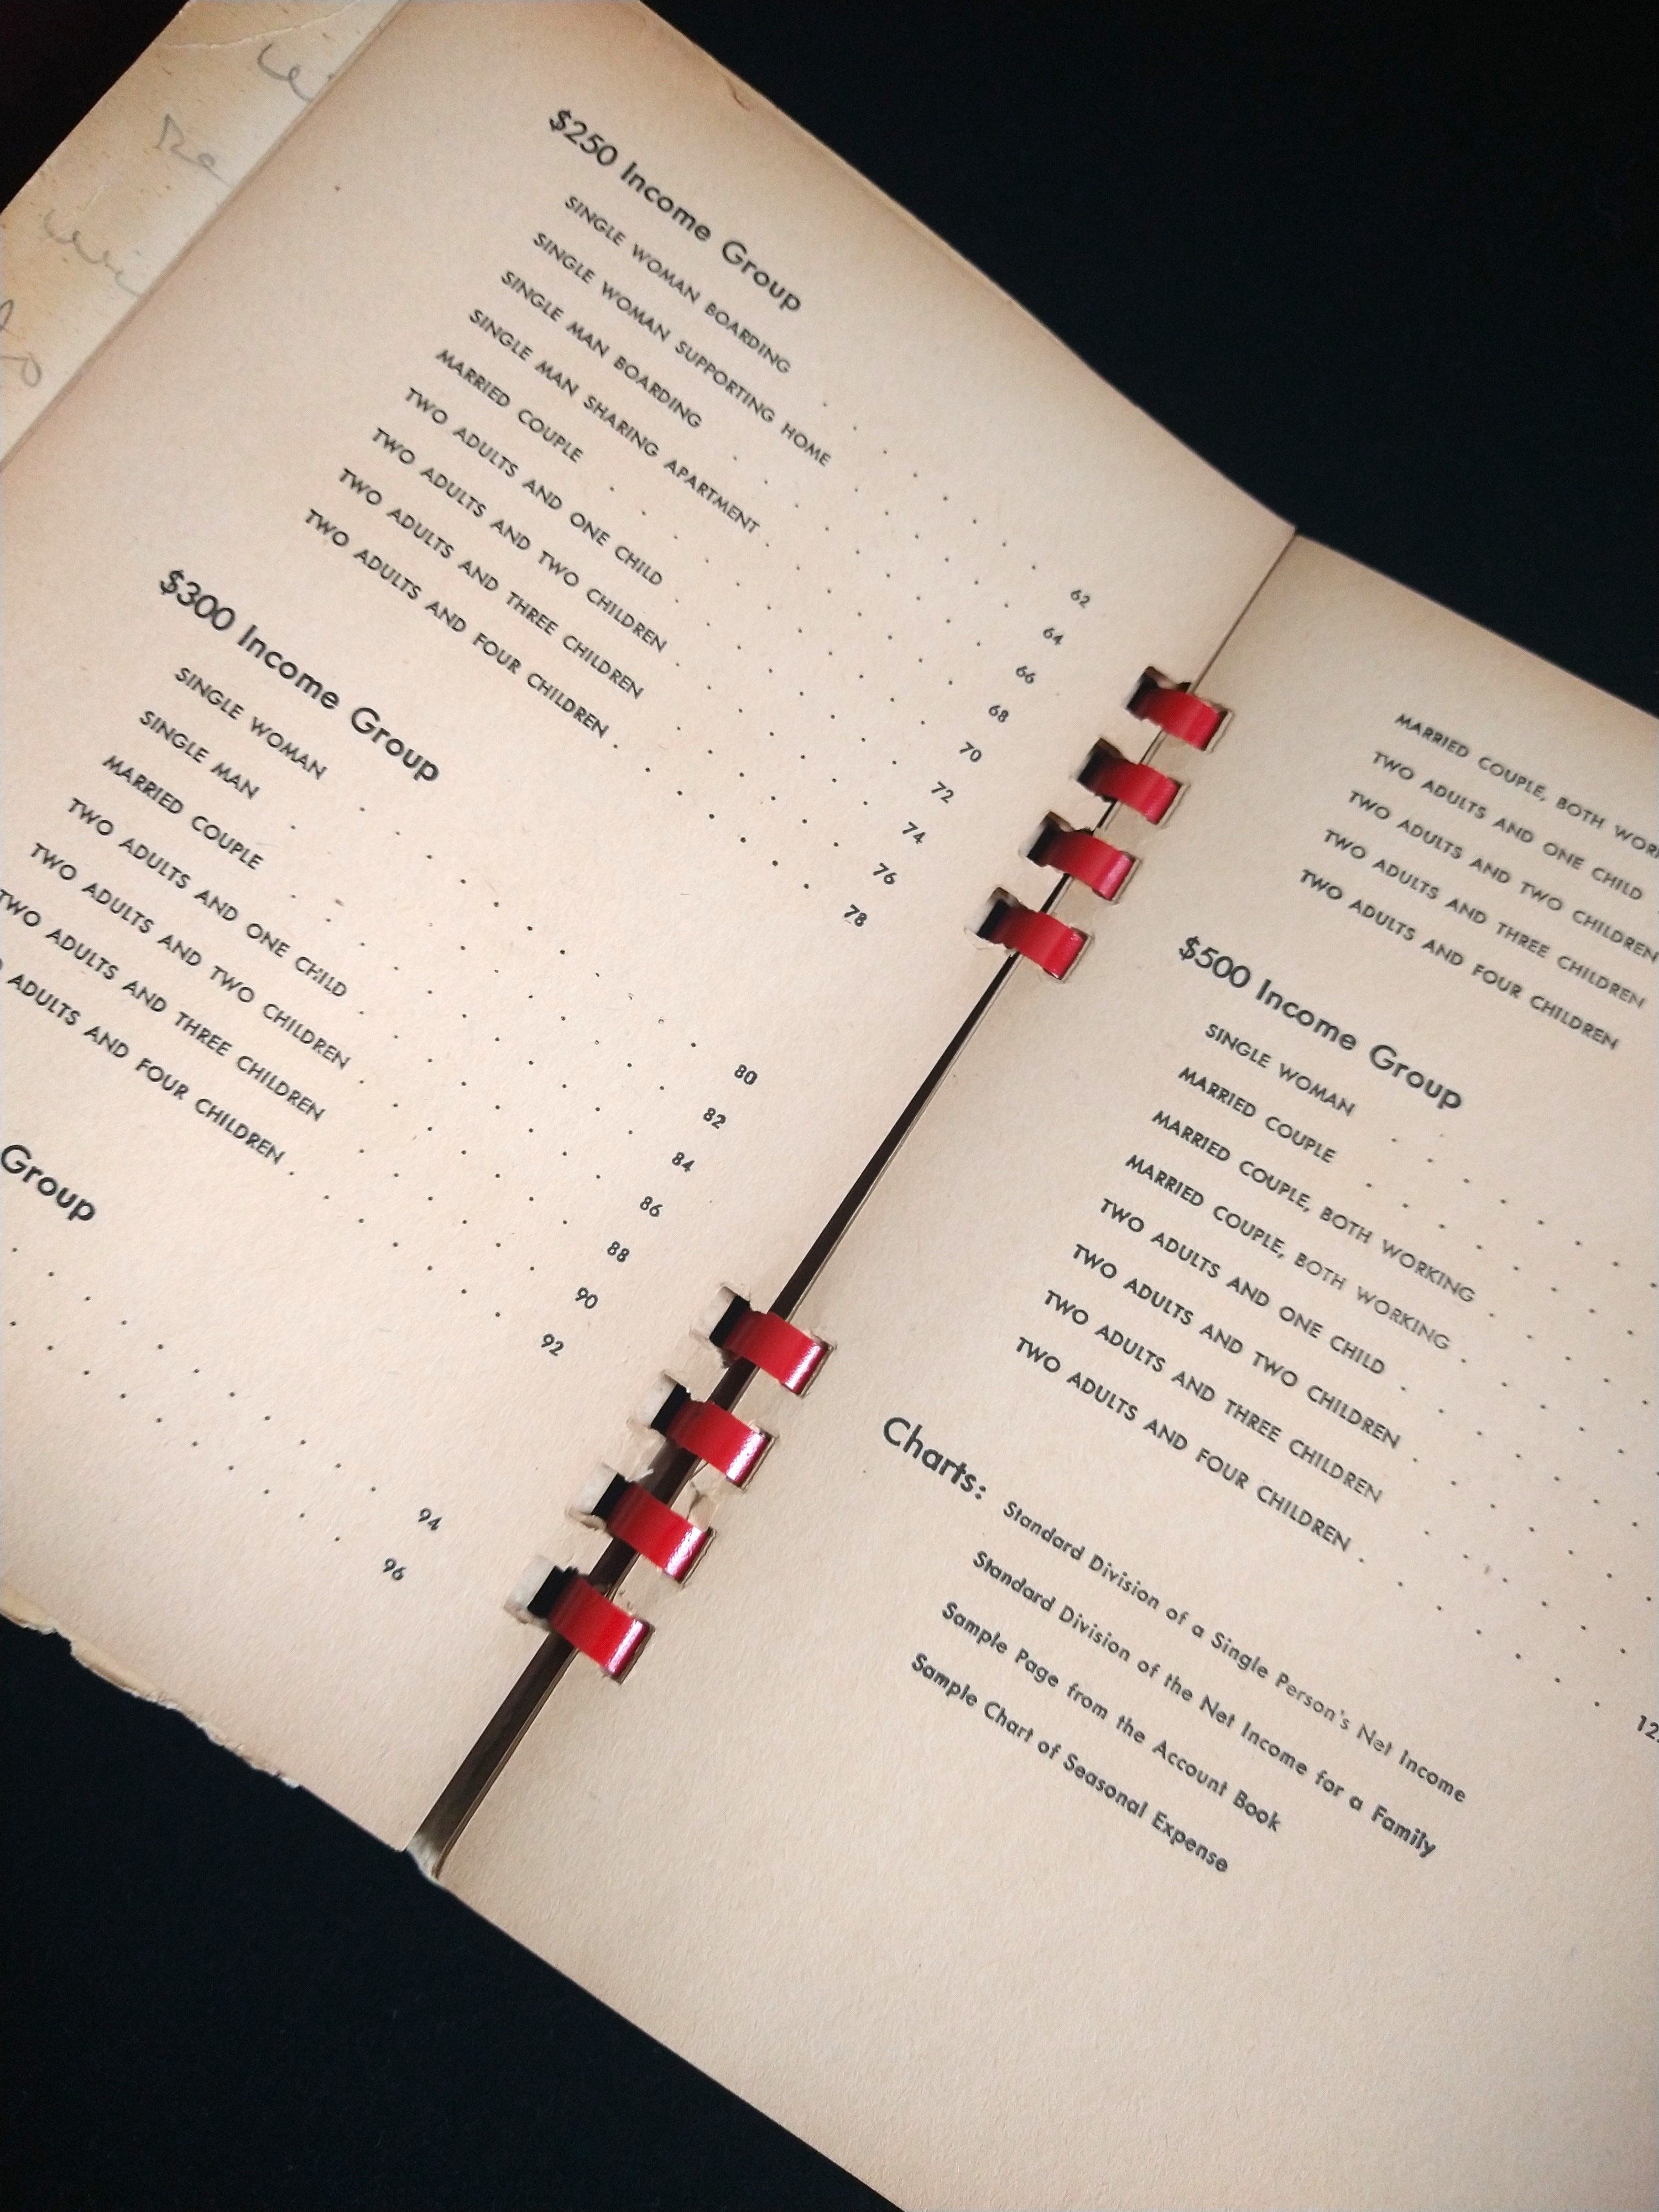 $250 Income Group
SINGLE WOMAN BOARDING . . . . . . . . 62
SINGLE WOMAN SUPPORTING HOME . . . . . . 64
SINGLE MAN BOARDING . . . . . . . . . 66
SINGLE MAN SHARING APARTMENT . . . . . . 68
MARRIED COUPLE . . . . . . . . . . . 70
TWO ADULTS AND ONE CHILD . . . . . . . . 72
TWO ADULTS AND TWO CHILDREN . . . . . . . 74
TWO ADULTS AND THREE CHILDREN . . . . . . 76
TWO ADULTS AND FOUR CHILDREN . . . . . . . 78
$300 Income Group
SINGLE WOMAN . . . . . . . . . . . 80
SINGLE MAN . . . . . . . . . . . . 82
MARRIED COUPLE . . . . . . . . . . . 84
TWO ADULTS AND ONE CHILD . . . . . . . . 86
TWO ADULTS AND TWO CHILDREN . . . . . . . 88
TWO ADULTS AND THREE CHILDREN . . . . . . 90
ADULTS AND FOUR CHILDREN . . . . . . . 92
Group
. . . . . . . . . . . 94
. . . . . . . . . . 96
MARRIED COUPLE, BOTH
TWO ADULTS AND ONE CHILD
TWO ADULTS AND TWO CHILDREN
TWO ADULTS AND THREE CHILDREN
TWO ADULTS AND FOUR CHILDREN
$500 Income Group
SINGLE WOMAN
MARRIED COUPLE
MARRIED COUPLE, BOTH WORKING
MARRIED COUPLE, BOTH WORKING
TWO ADULTS AND ONE CHILD
TWO ADULTS AND TWO CHILDREN
TWO ADULTS AND THREE CHILDREN
TWO ADULTS AND FOUR CHILDREN
Charts: Standard Division of a Single Person's Net Income
Standard Division of the Net Income for a Family
Sample Page from the Account Book
Sample Chart of Seasonal Expense